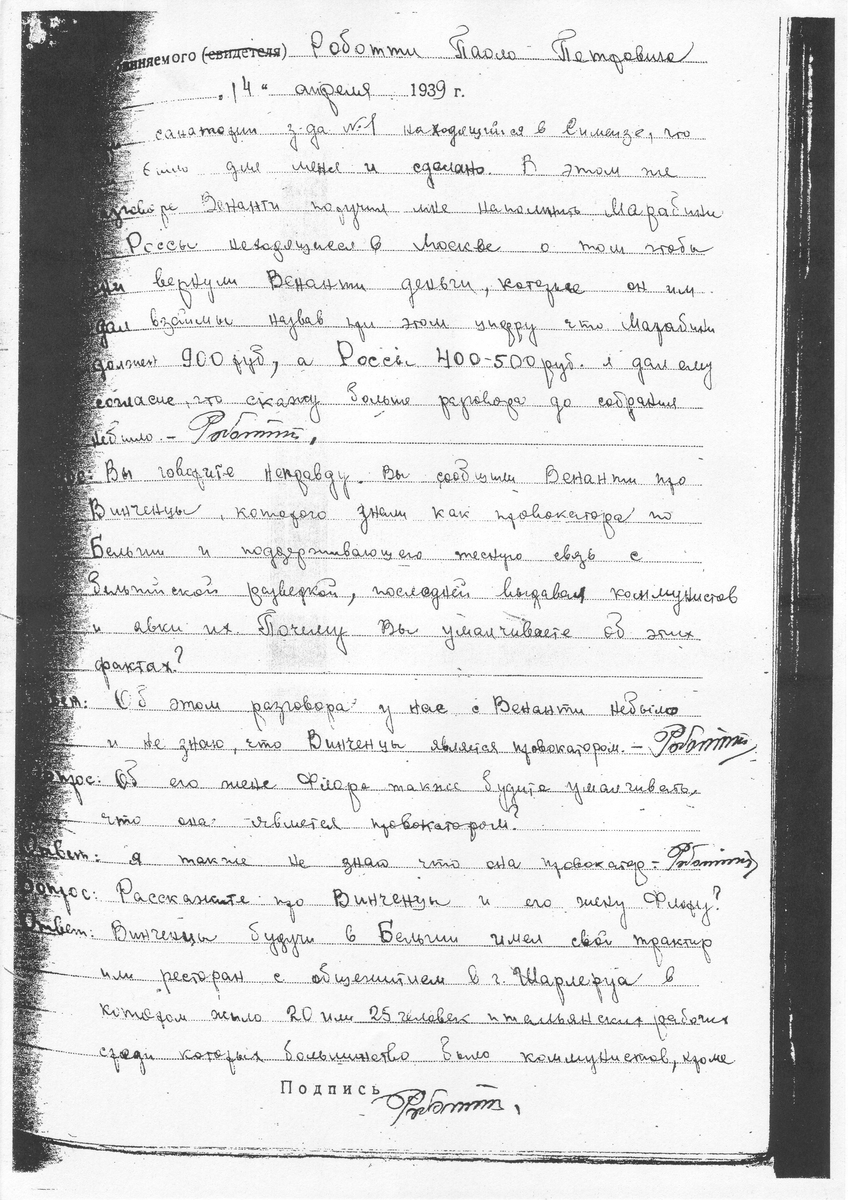 иняемого (свидетеля) Роботти Паоло Петровича
„14“ апреля 1939 г.
санатории з-да №1 находящийся в Симеизе, что
было для меня и сделано. В этом же
зговоре Венанти поручил мне напомнить Марабини
Россы находящиеся в Москве о том чтобы
вернули Венанти деньги, которые он им
дал взаймы назвав при этом цифру что Марабини
должен 900 руб, а Россы 400-500 руб. я дал ему
согласие, что скажу больше разговора до собрания
небыло. – Роботти,
Вы говорите неправду. Вы сообщили Венанти про
Винченцы, которого знали как провокатора по
Бельгии и поддерживающего тесную связь с
бельгийской разведкой, последней выдавал коммунистов
и явки их. Почему Вы умалчиваете об этих
фактах?
вет: Об этом разговора у нас с Венанти небыло
и не знаю, что Винченцы является провокатором. – Роботти
опрос: Об его жене Флора также будите умалчивать,
что она является провокатором?
Ответ: я также не знаю что она провокатор – Роботти
Вопрос: Расскажите про Винченцы и его жену Флору?
Ответ: Винченцы будучи в Бельгии имел свой трактир
или ресторан с общежитием в г. Шарлеруа в
котором жило 20 или 25 человек итальянских рабочих
среди которых большинство было коммунистов, кроме
Подпись Роботти,